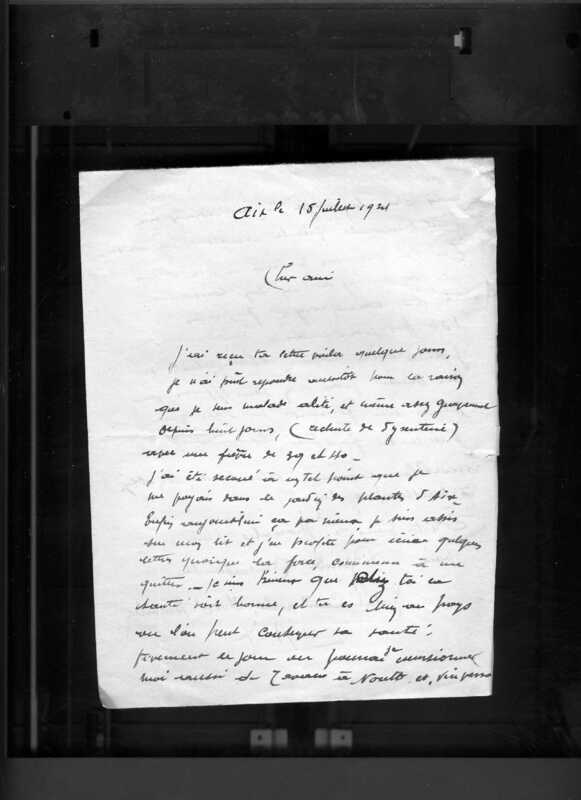 Aix le 15 juillet 1921
Cher ami
J'ai reçu ta lettre voila quelque jours,
je n'ai put repondre aussitôt pour la raison
que je suis malade alité, et même assez gravement
depuis huit jours, (rechute de dysenterie)
avec une fièvre de 39 et 40 –
J'ai été secoué à un tel point que je
me voyais dans le jardin des plantes d'Aix
Enfin aujourd'hui ça va mieux je suis assis
sur mon lit et j'en profite pour écrire quelques
lettres quoique la force, commence à me
quitter – Je suis heureux que toi ta
santé soit bonne, et tu es au pays
ou l'on peut conserver sa santé.
Vivement le jour ou je pourrai
moi aussi de à et,